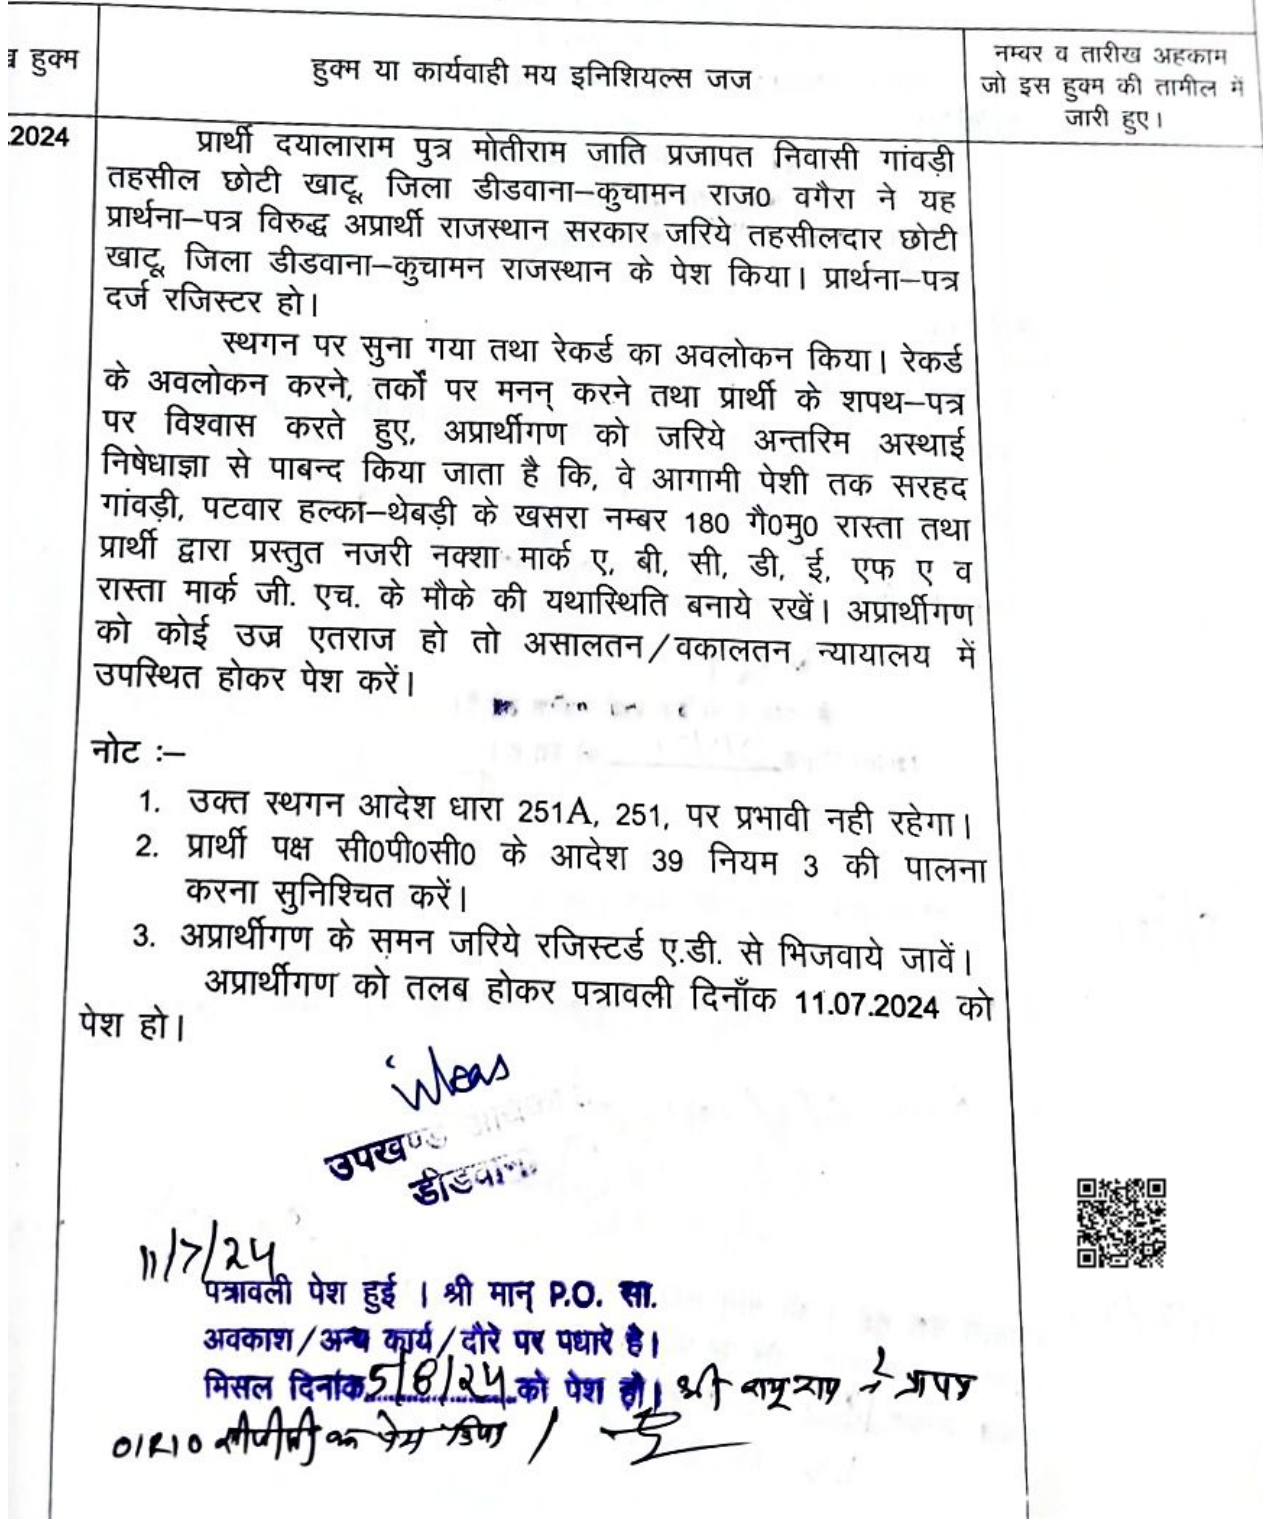 हुक्म
हुक्म या कार्यवाही मय इनिशियल्स जज
नम्बर व तारीख अहकाम
जो इस हुक्म की तामील में
जारी हुए।
.2024
प्रार्थी दयालाराम पुत्र मोतीराम जाति प्रजापत निवासी गांवड़ी
तहसील छोटी खाटू, जिला डीडवाना–कुचामन राज0 वगैरा ने यह
प्रार्थना–पत्र विरुद्ध अप्रार्थी राजस्थान सरकार जरिये तहसीलदार छोटी
खाटू, जिला डीडवाना–कुचामन राजस्थान के पेश किया। प्रार्थना–पत्र
दर्ज रजिस्टर हो।
स्थगन पर सुना गया तथा रेकर्ड का अवलोकन किया। रेकर्ड
के अवलोकन करने, तर्कों पर मनन् करने तथा प्रार्थी के शपथ–पत्र
पर विश्वास करते हुए, अप्रार्थीगण को जरिये अन्तरिम अस्थाई
निषेधाज्ञा से पाबन्द किया जाता है कि, वे आगामी पेशी तक सरहद
गांवड़ी, पटवार हल्का–थेबड़ी के खसरा नम्बर 180 गै0मु0 रास्ता तथा
प्रार्थी द्वारा प्रस्तुत नजरी नक्शा मार्क ए, बी, सी, डी, ई, एफ ए व
रास्ता मार्क जी. एच. के मौके की यथास्थिति बनाये रखें। अप्रार्थीगण
को कोई उज्र एतराज हो तो असालतन/वकालतन न्यायालय में
उपस्थित होकर पेश करें।
नोट :–
1. उक्त स्थगन आदेश धारा 251A, 251, पर प्रभावी नही रहेगा।
2. प्रार्थी पक्ष सी0पी0सी0 के आदेश 39 नियम 3 की पालना
करना सुनिश्चित करें।
3. अप्रार्थीगण के समन जरिये रजिस्टर्ड ए.डी. से भिजवाये जावें।
अप्रार्थीगण को तलब होकर पत्रावली दिनाँक 11.07.2024 को
पेश हो।
उपखण्ड
डीडवाना
11/7/24
पत्रावली पेश हुई । श्री मान् P.O. सा.
अवकाश/अन्य कार्य/दौरे पर पधारे है।
मिसल दिनांक 5/8/24 को पेश हो। श्री
01R10 सीपीसी का पेश किया /